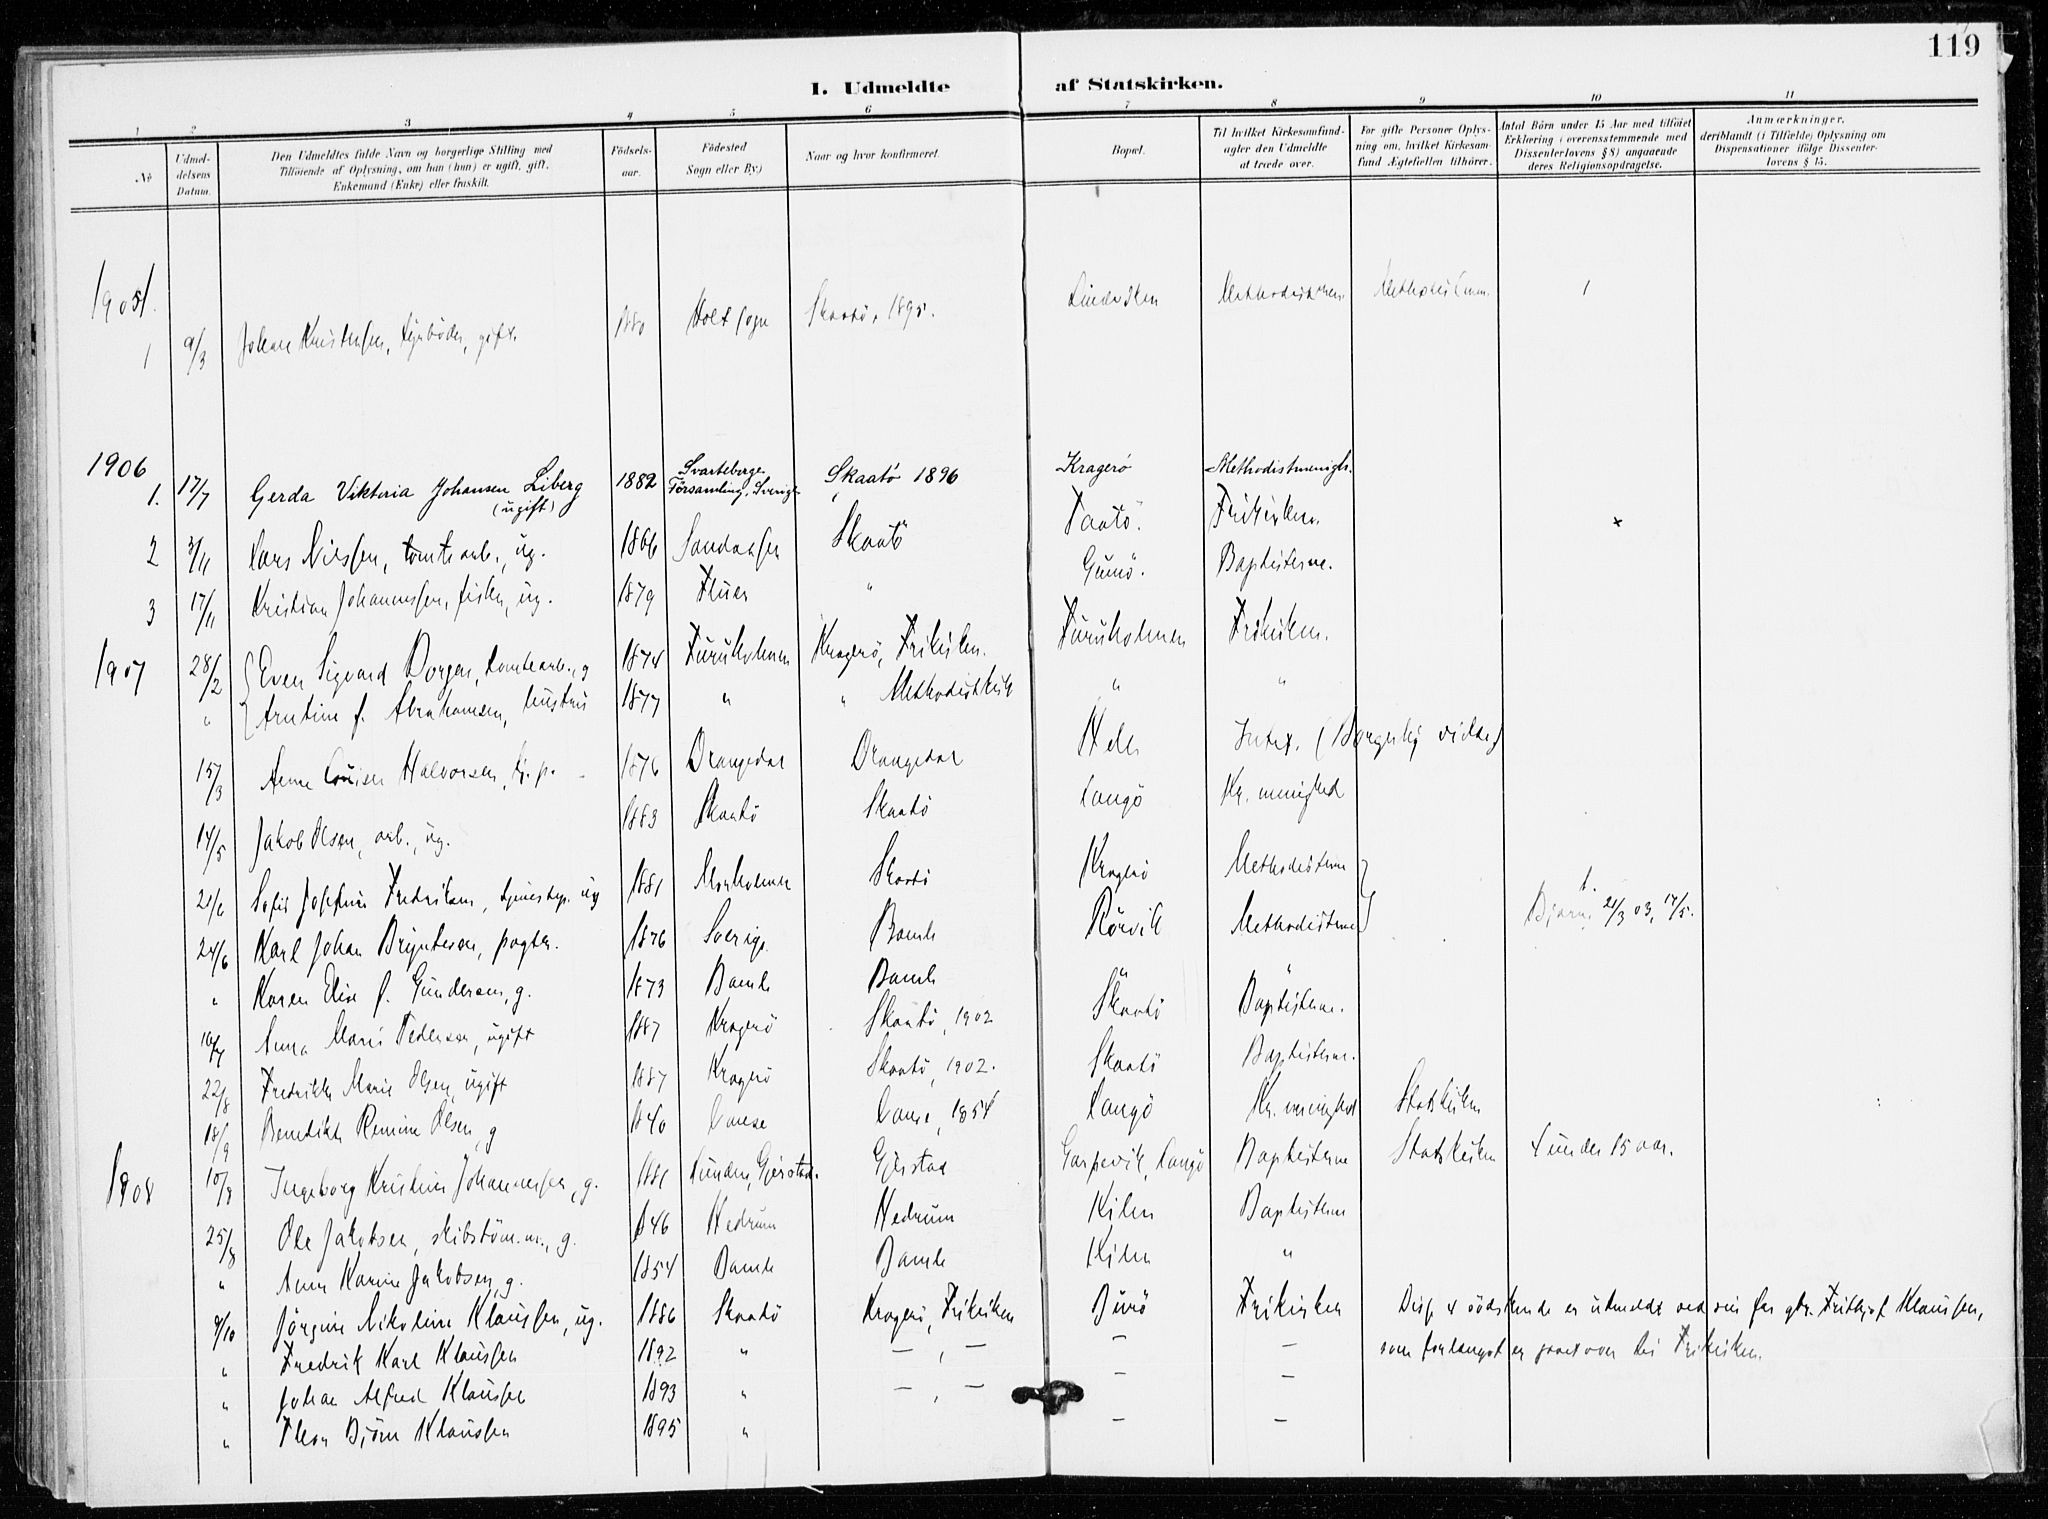 119
I. Udmeldte af Statskirken.
1 2 3 4 5 6 7 8 9 10 11
No
Udmeldelsens Datum.
Den Udmeldtes fulde Navn og borgerlige Stilling med
Tilföiende af Oplysning, om han (hun) er ugift, gift,
Enkemand (Enke) eller fraskilt.
Födselsaar.
Födested
Sogn eller By.)
Naar og hvor konfirmeret.
Bopæl.
Til hvilket Kirkesamfund
agter den Udmeldte
at træde over.
For gifte Personer Oplysning om, hvilket Kirkesamfund Ægtefællen tilhörer.
Antal Börn under 15 Aar med tilföiet
Erklæring i overensstemmende med
Dissenterlovens § 8) angaaende
deres Religionsopdragelse.
Anmærkninger,
deriblandt (i Tilfælde) Oplysning om
Dispensationer ifölge Dissenterlovens § 15.
1905
1 9/3 Johan Kristensen, gift. 1880 Holt sogn Skaatö, 1895. 1
1906
1. 17/7 Gerda Viktoria Johansen Liberg (ugift) 1882 Svarteborgs Församling, Sverige Skaatö 1896 Kragerö Methodistmenigh.
2 3/11 Lars Nilssen, tomtearb., ug. 1866 Skaatö Taatö. Frikirken. x
3 17/11 Kristian Johannessen, fisker, ug. 1879 " Gumö. Baptisterne.
1907 28/2 Even Sigvard Dorgen, tomtearb., g 1874 Furuholmen Kragerö, Frikirken. Furuholmen Frikirken.
" f. Abrahamsen, hustru 1877 " " Methodistkirk " "
15/3 Anne Louise Halvorsen, 1876 Drangedal Drangedal Helle (Borgerlig vielse)
14/5 Jakob Olsen, arb., ug. 1883 Skaatö Skaatö Langö Kr. menighed
21/6 Sofie Josefine Fredriksen, tjenestep. ug 1881 Skaatö Kragerö Methodisterne
24/6 Karl Johan Bryntesen, 1876 Sverige Bamle Rörvik Methodisterne 1. Bjarne, 21/3 03, 17/5.
" Karen Elise f. Gundersen, g. 1873 Bamle Bamle " "
Anna Marie Pedersen, ugift 1887 Kragerö Skaatö, 1902 Skaatö Baptisterne.
22/8 Fredrikke Marie Olsen, ugift 1887 Kragerö Skaatö, 1902. Skaatö Baptisterne.
18/9 Benedikte Olsen, g 1840 Sanse 1854 Langö Kr. menighed Statskirken
1908 10/8 Ingeborg Kristine Johannessen, g. 1881 Gjerstad. Gjerstad Garpevik, Langö Baptisterne Statskirken 4 under 15 aar.
25/8 Ole Jakobsen, skibstöm.m., g. 1846 Hedrum Hedrum Kilen Baptisterne
" Anne Karine Jakobsen, g. 1854 Bamle Bamle Kilen "
9/10 Jörgine Nikoline Klaussen, ug. 1886 Skaatö Kragerö, Frikirken Burö Frikirken Disse 4 södskende er udmeldt ved sin far Frithjof Klaussen,
" Fredrik Karl Klaussen 1892 " — , — — — som forlængst er gaaet over til Frikirken.
" Johan Alfred Klaussen 1893 " — , — — —
" Bjørn Klaussen 1895 " — —